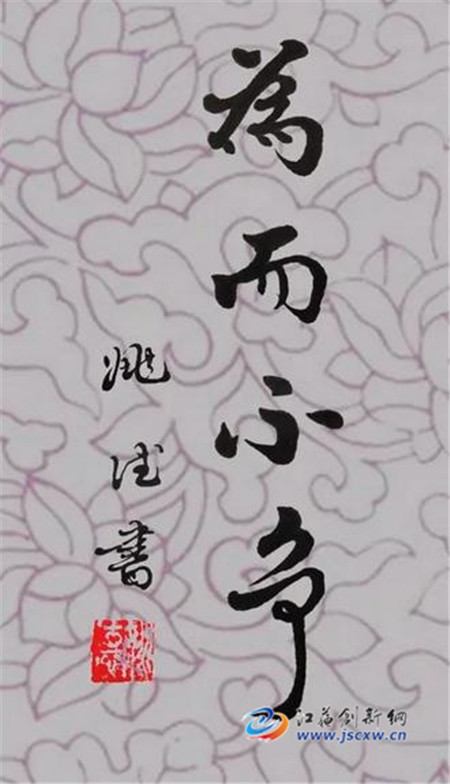 為而不争
書
江苏创新網
www.jscxw.cn